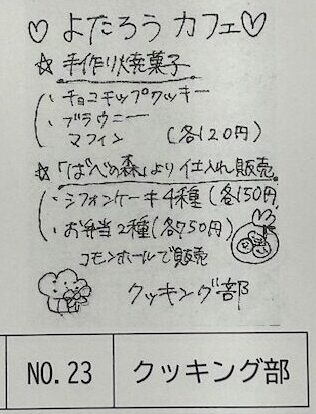 ♡ よたろう カフェ ♡
☆ 手作り焼菓子
・チョコチップクッキー
・ブラウニー
マフィン (各120円)
☆「ばべの森」より仕入れ販売
・シフォンケーキ4種 (各150円)
・お弁当2種(各750円)
コモンホールで販売
クッキング部
NO.23 クッキング部